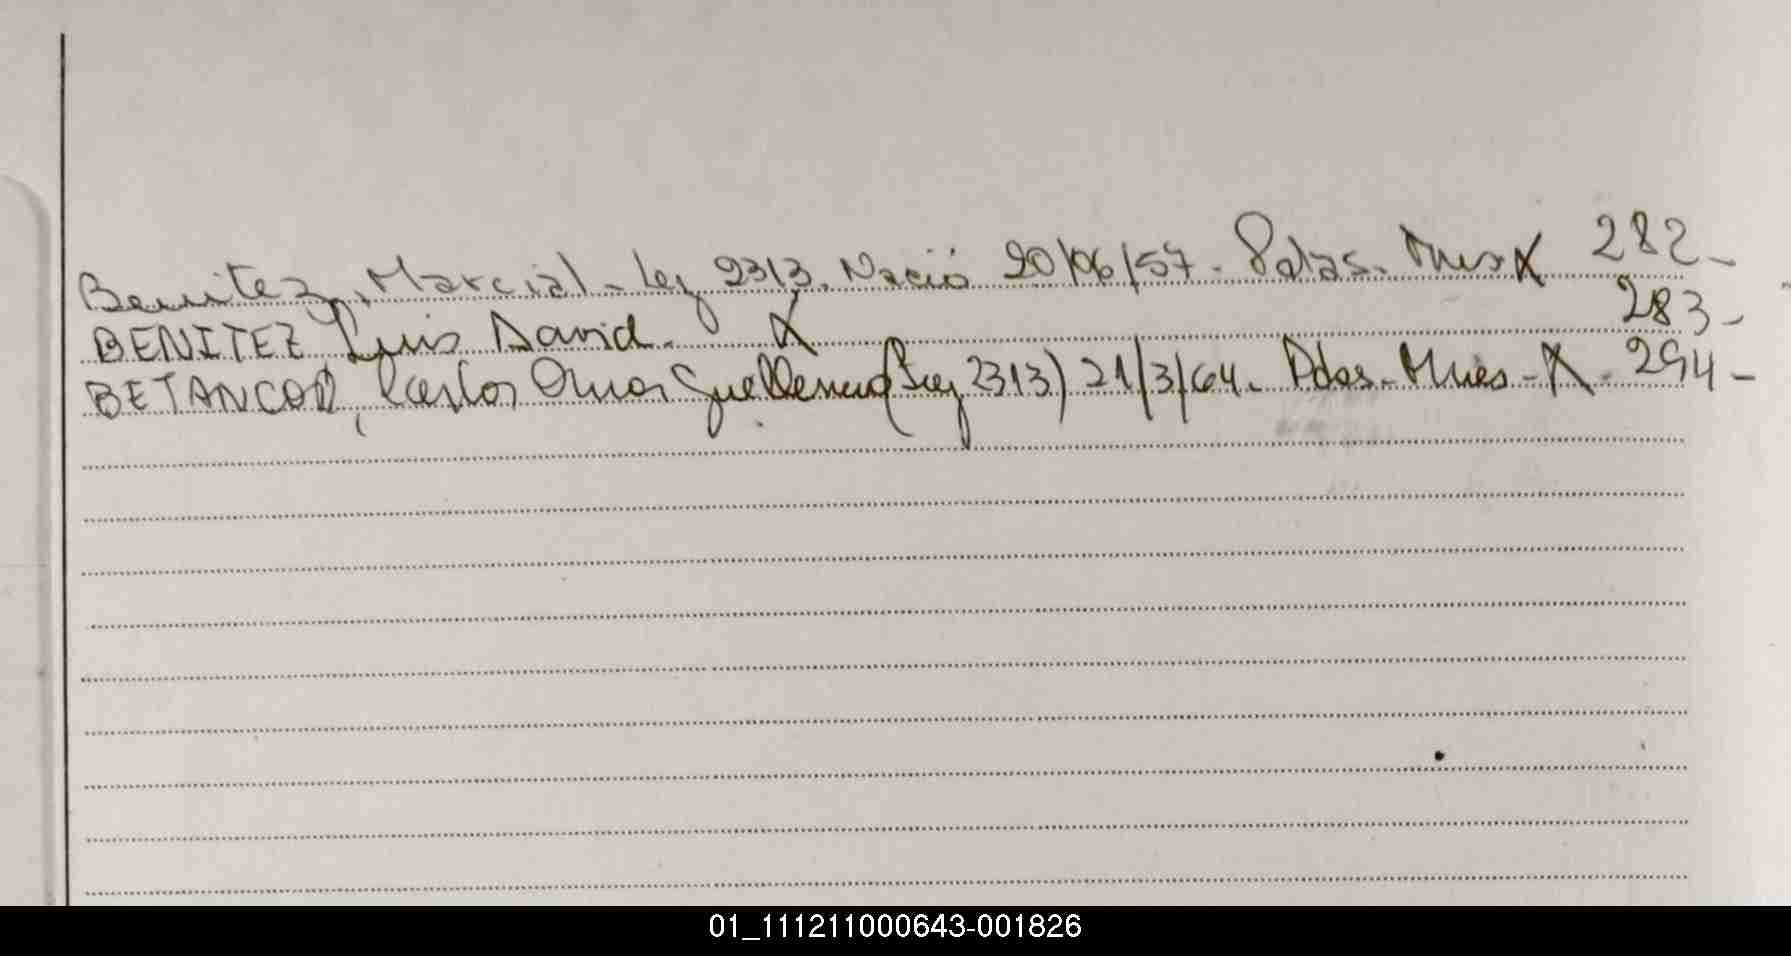 Benitez, Marcial - Ley 2313. Nació 20/06/57 - Pdas. Mnes X 282 -
BENITEZ Luis David. X 283 -
BETANCOR, Carlos Omar Guillermo (Ley 2313) 21/3/64. Pdas. Mnes - X. 294 -
01_111211000643-001826